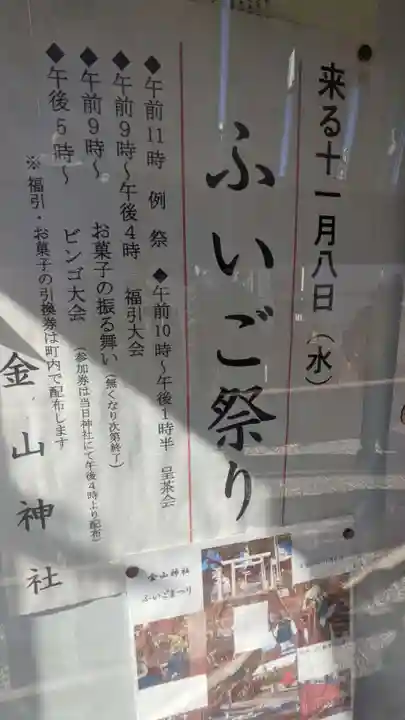 来る十一月八日（水）
ふいご祭り
◆午前11時 例祭 ◆午前10時～午後1時半 呈茶会
◆午前9時～午後4時 福引大会
◆午前9時～ お菓子の振る舞い（無くなり次第終了）
◆午後5時～ ビンゴ大会（参加券は当日神社にて午後4時より配布）
※福引・お菓子の引換券は町内で配布します
金山神社
金山神社
ふいごまつり